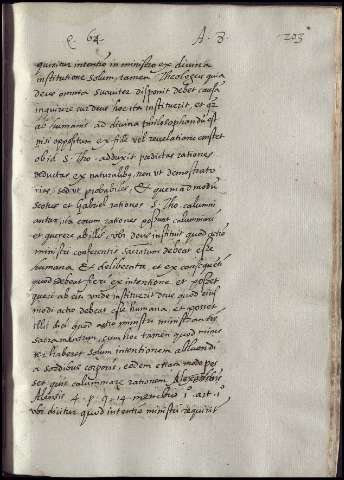 q. 64. A. 3. 203
quiritur intentio in ministro ex divina
institutione solum, tamen Theologus quia
deus omnia suaviter disponit debet causa
inquirere cur deus hoc ita instituerit, et
ab humanis ad divina philosophandū
nisi oppositum ex fide vel revelatione constet
ob id S. Tho. adduxit praedictas rationes
deductas ex naturalibus, non ut demonstrato
rias, sed ut probabiles, & quemadmodū
scotus et Gabriel rationes S. Tho. calumni
antur, ita eorum rationes possunt calumniari
et querere ab illis, ubi deus instituit quod actio
ministri conferentis sacramentum debeat esse
humana & deliberata, et ex consequēti
quod debeat fieri ex intentione. et posset
queri ab eis unde instituerit deus quod eius
modi actio debeat esse humana, et posset
illis dici quod actio ministri ministrantis
sacramentum, cum hoc tamen quod minis
ter haberet solum intentionem abluendi
a sordibus corporis, eodem etiam modo pos
set quis calumniari rationem Alexandri
Alensis 4. p. q. 14 membris 1. art. 1
ubi dicitur quod intentio ministri requirit